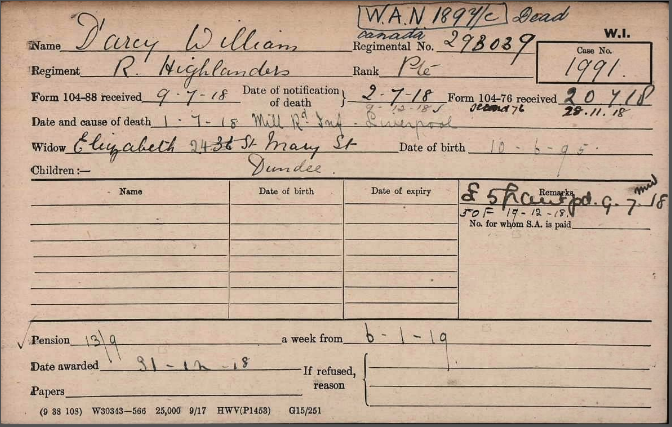 W.A.N 1892/C Dead
W.I.
Canada
Name D'arcy William Regimental No. 293039 Case No.
Regiment R. Highlanders Rank Pte 1991.
Form 104-88 received 9-7-18 Date of notification of death } 2-7-18 Form 104-76 received 20 7 18
9-12-18 second 76 28.11.18
Date and cause of death 1-7-18 Mill Rd Inf - Liverpool
Widow Elizabeth St Mary St Date of birth 10-6-95
Children:— Dundee
Name Date of birth Date of expiry Remarks
£5 Grant pd. 9.7.18
50F 17-12-18
No. for whom S.A. is paid
Pension 13/9 a week from 6-1-19
Date awarded 31-12-18 If refused, reason {
Papers
(9 38 108) W30343—566 25,000 9/17 HWV(P1453) G15/251